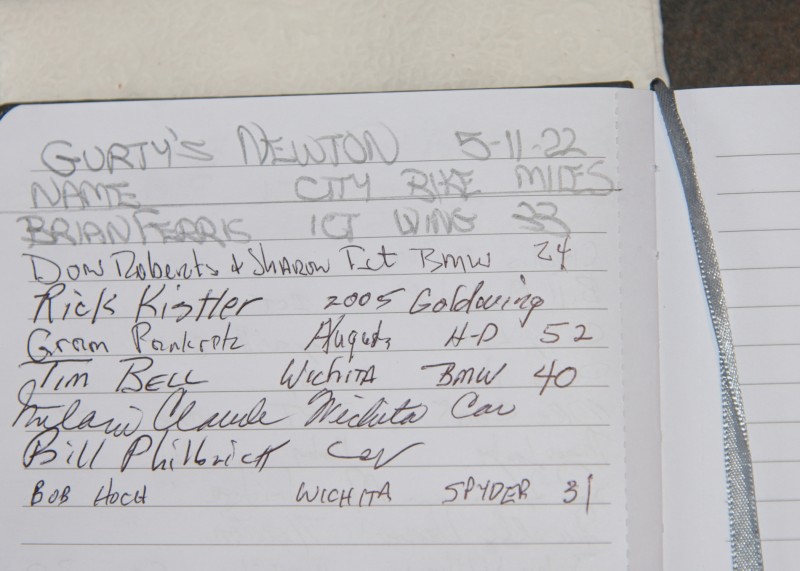 GURTY'S NEWTON 5-11-22
NAME CITY BIKE MILES
BRIAN FERRIS ICT WING 33
Don Roberts & SHARON Ict BMW 24
Rick Kistler 2005 Goldwing
Gram Pankratz Augusta H-D 52
TIM BELL WICHITA BMW 40
Claude Wichita Car
Bill Philbrick Car
BOB HOCH WICHITA SPYDER 31